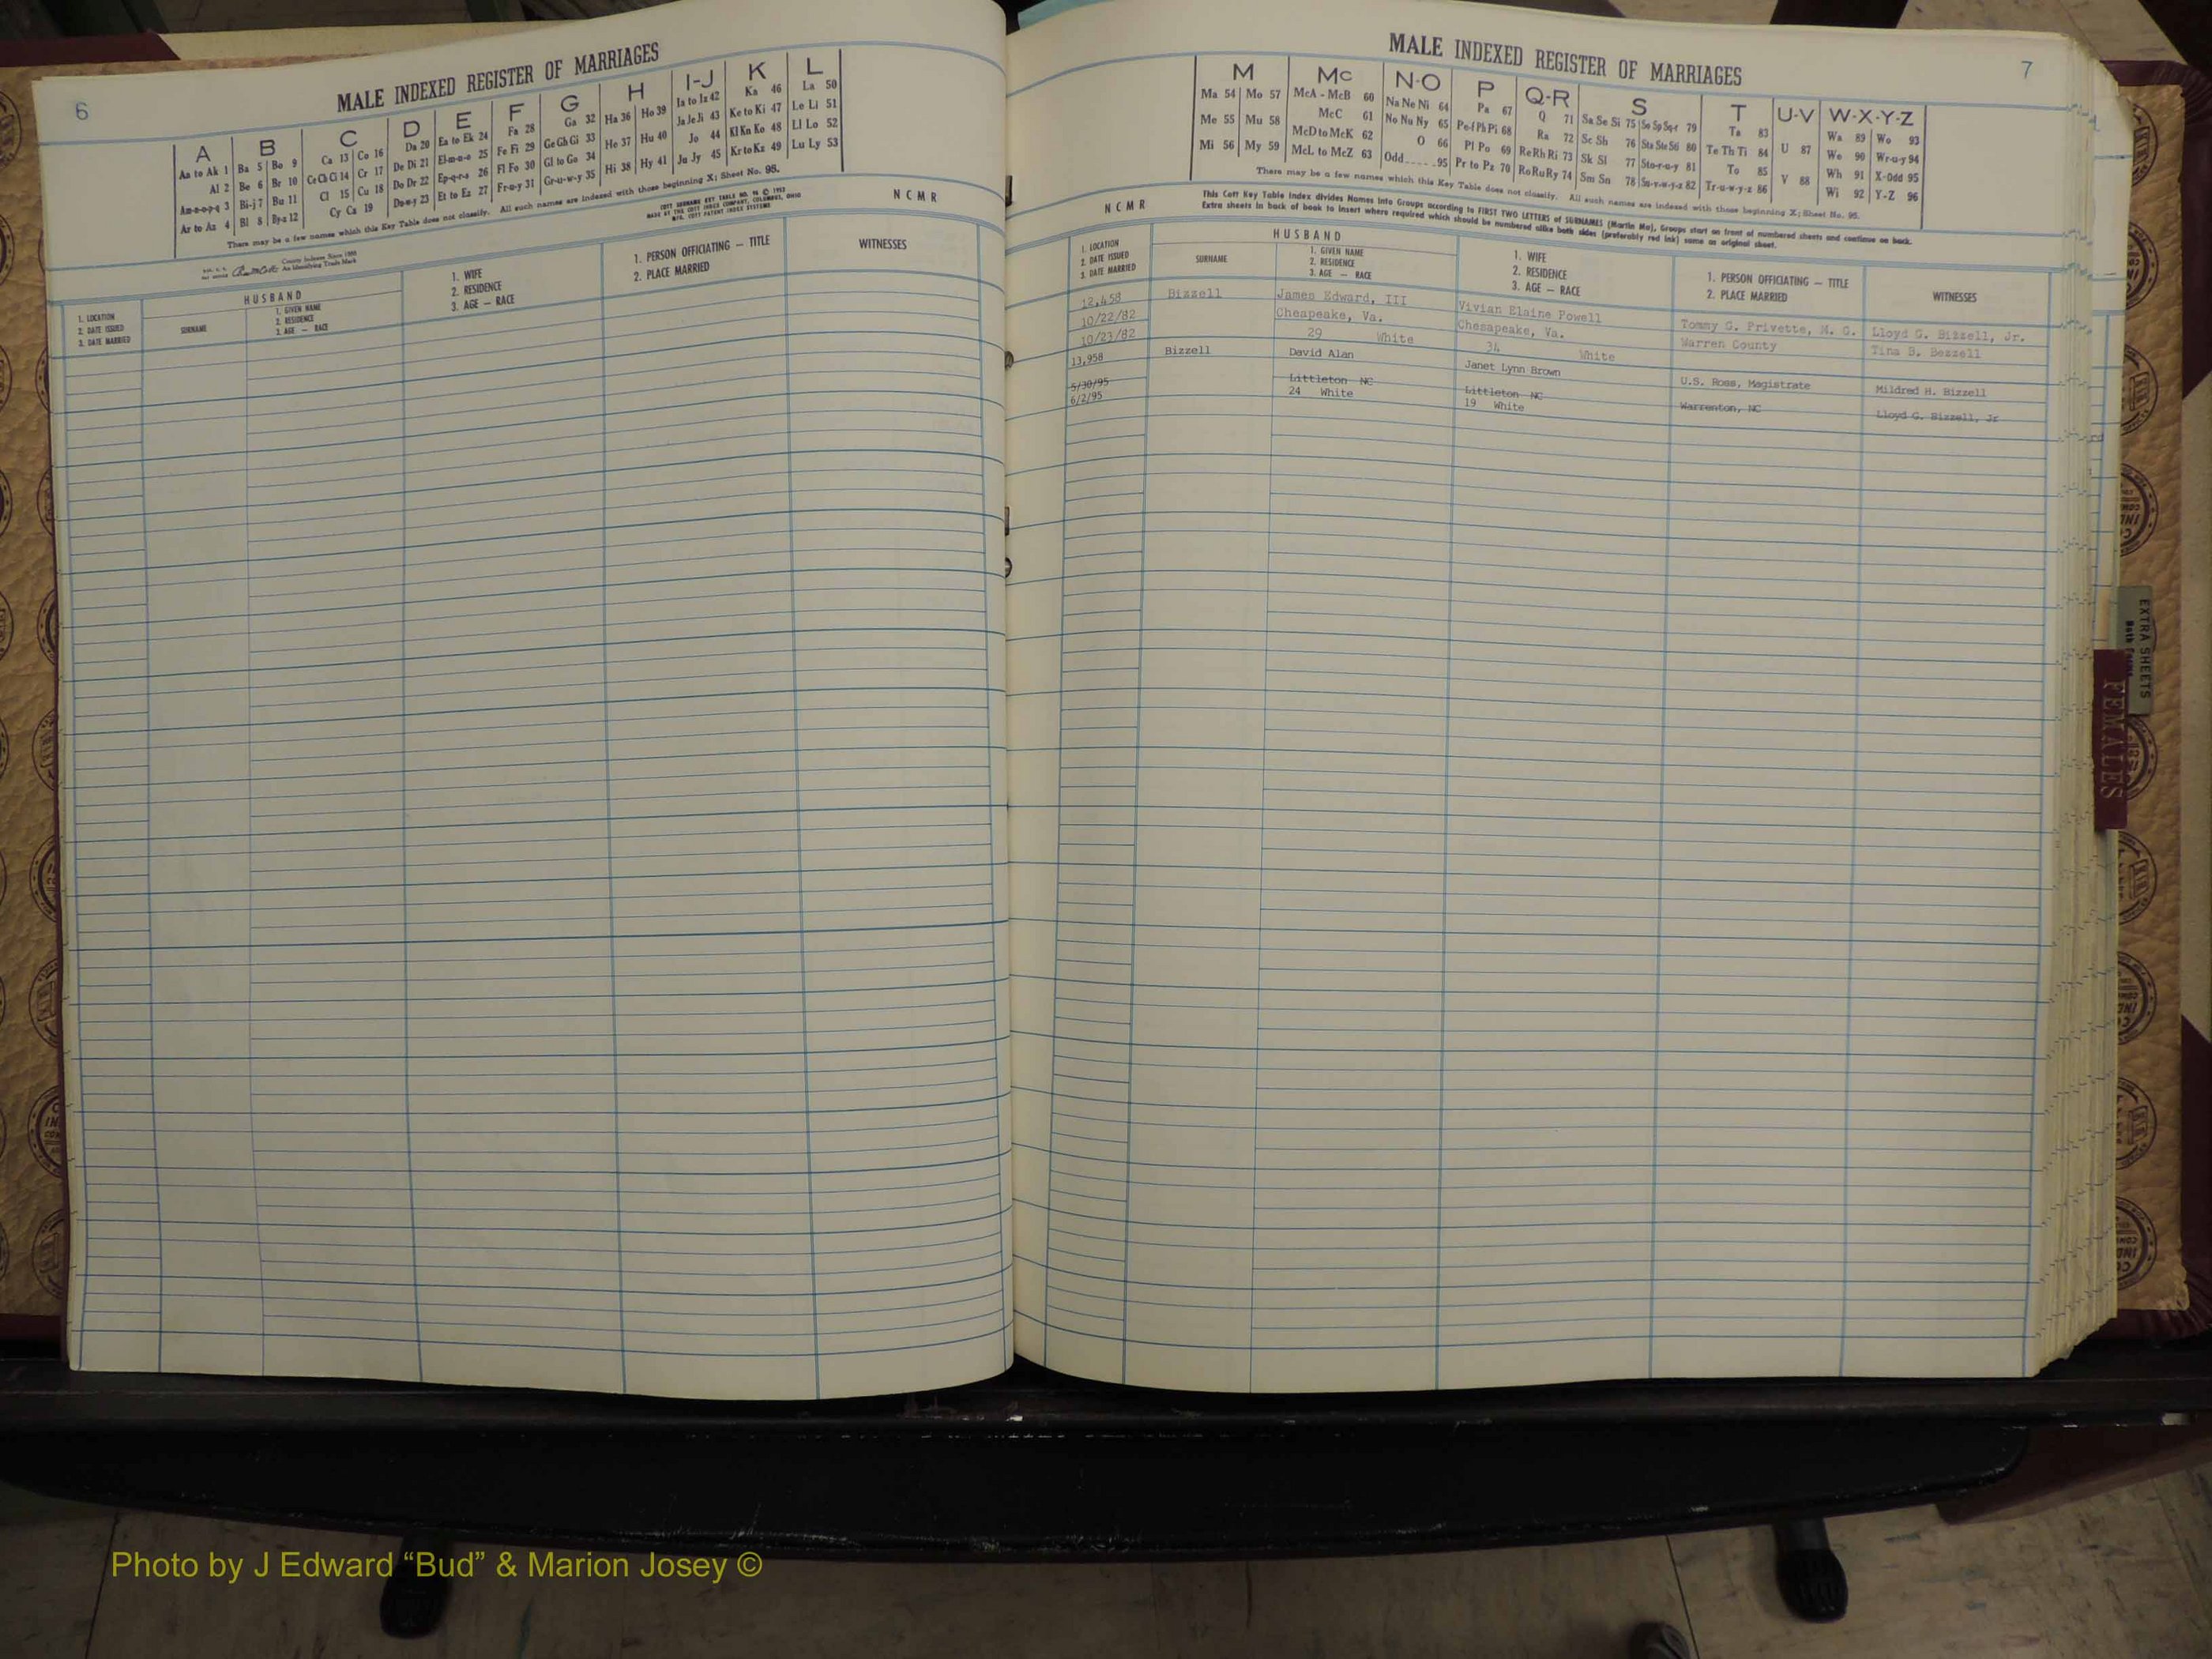 6
MALE INDEXED REGISTER OF MARRIAGES
A B C D E F G H I-J K L
Aa to Ak 1 Ba 5 Bo 9 Ca 13 Co 16 Da 20 Ea to Ek 24 Fa 28 Ga 32 Ha 36 Ho 39 Ia to Iz 42 Ka 46 La 50
Al 2 Be 6 Br 10 Ce Ch Ci 14 Cr 17 De Di 21 El-m-n-o 25 Fe Fi 29 Ge Gh Gi 33 He 37 Hu 40 Ja Je Ji 43 Ke to Ki 47 Le Li 51
Am-n-o-p-q 3 Bi-j 7 Bu 11 Cl 15 Cu 18 Do Dr 22 Ep-q-r-s 26 Fl Fo 30 Gl to Go 34 Hi 38 Hy 41 Jo 44 Kl Kn Ko 48 Ll Lo 52
Ar to Az 4 Bl 8 By-z 12 Cy Cz 19 Du-w-y 23 Et to Ez 27 Fr-u-y 31 Gr-u-w-y 35 Ju Jy 45 Kr to Kz 49 Lu Ly 53
There may be a few names which this Key Table does not classify. All such names are indexed with those beginning X; Sheet No. 95.
County Indexes Since 1888
An Identifying Trade Mark
COTT SURNAME KEY TABLE NO. 96 © 1953
MADE BY THE COTT INDEX COMPANY, COLUMBUS, OHIO
MFG. COTT PATENT INDEX SYSTEMS
NCMR
1. LOCATION
2. DATE ISSUED
3. DATE MARRIED
HUSBAND
SURNAME
1. GIVEN NAME
2. RESIDENCE
3. AGE — RACE
1. WIFE
2. RESIDENCE
3. AGE — RACE
1. PERSON OFFICIATING — TITLE
2. PLACE MARRIED
WITNESSES
MALE INDEXED REGISTER OF MARRIAGES
7
M Mc N-O P Q-R S T U-V W-X-Y-Z
Ma 54 Mo 57 McA - McB 60 Na Ne Ni 64 Pa 67 Q 71 Sa Se Si 75 So Sp Sq-r 79 Ta 83 U 87 Wa 89 Wo 93
Me 55 Mu 58 McC 61 No Nu Ny 65 Pe-f Ph Pi 68 Ra 72 Sc Sh 76 Sta Ste Sti 80 Te Th Ti 84 V 88 We 90 Wr-u-y 94
Mi 56 My 59 McD to McK 62 O 66 Pl Po 69 Re Rh Ri 73 Sk Sl 77 Sto-r-u-y 81 To 85 Wh 91 X-Odd 95
McL to McZ 63 Odd 95 Pr to Pz 70 Ro Ru Ry 74 Sm Sn 78 Su-v-w-y-z 82 Tr-u-w-y-z 86 Wi 92 Y-Z 96
There may be a few names which this Key Table does not classify. All such names are indexed with those beginning X; Sheet No. 95.
NCMR
This Cott Key Table Index divides Names into Groups according to FIRST TWO LETTERS of SURNAMES (Martin Ma), Groups start on front of numbered sheets and continue on back.
Extra sheets in back of book to insert where required which should be numbered alike both sides (preferably red ink) same as original sheet.
1. LOCATION
2. DATE ISSUED
3. DATE MARRIED
HUSBAND
SURNAME
1. GIVEN NAME
2. RESIDENCE
3. AGE — RACE
1. WIFE
2. RESIDENCE
3. AGE — RACE
1. PERSON OFFICIATING — TITLE
2. PLACE MARRIED
WITNESSES
12,458 Bizzell James Edward, III Vivian Elaine Powell Tommy G. Privette, M. G. Lloyd G. Bizzell, Jr.
10/22/82 Cheapeake, Va. Chesapeake, Va. Warren County Tina B. Bezzell
10/23/82 29 White 34 White
13,958 Bizzell David Alan Janet Lynn Brown U.S. Ross, Magistrate Mildred H. Bizzell
5/30/95 Littleton NC Littleton NC Warrenton, NC Lloyd G. Bizzell, Jr
6/2/95 24 White 19 White
EXTRA SHEETS
FEMALES
Photo by J Edward “Bud” & Marion Josey ©